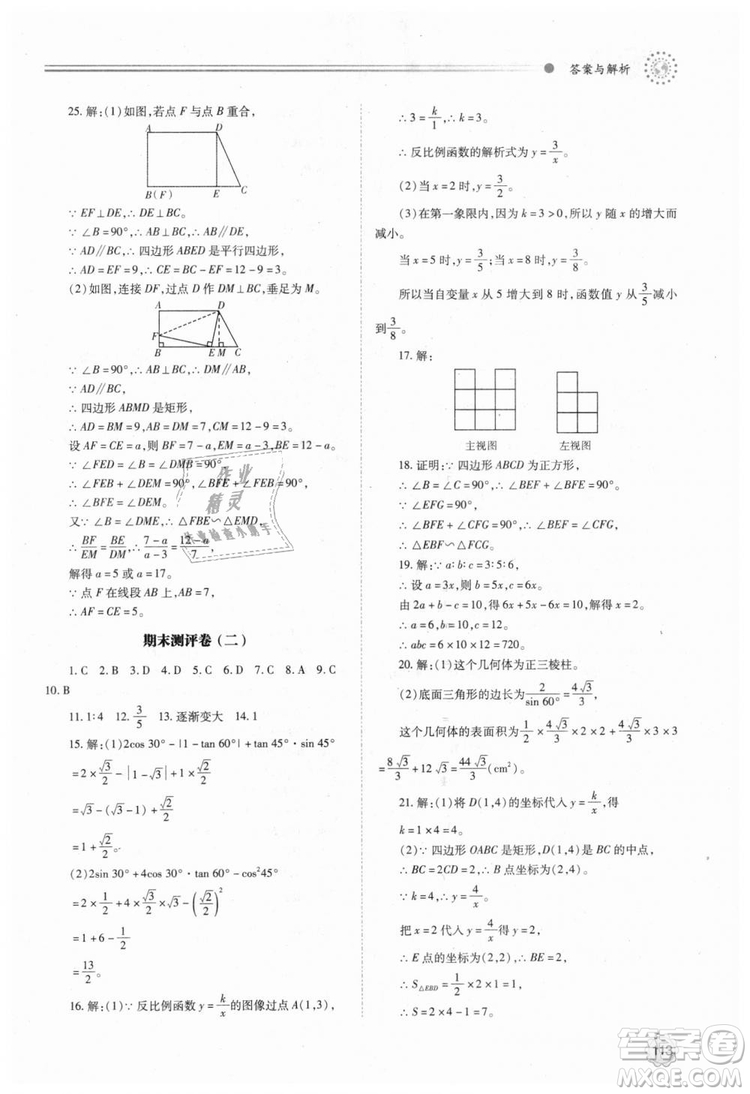 答案与解析
25. 解:(1)如图,若点 F 与点 B 重合,
A D
B(F) E C
∵ EF⊥DE,∴ DE⊥BC。
∵ ∠B=90°,∴ AB⊥BC,∴ AB∥DE。
∵ AD∥BC,∴ 四边形 ABED 是平行四边形,
∴ AD=EF=9,∴ CE=BC-EF=12-9=3。
(2)如图,连接 DF,过点 D 作 DM⊥BC,垂足为 M。
A D
F
B E M C
∵ ∠B=90°,∴ AB⊥BC,∴ AB∥DM。
∵ AD∥BC,
∴ 四边形 ABMD 是矩形,
∴ AD=BM=9,AB=DM=7,CM=12-9=3。
设 AF=CE=a,则 BF=7-a,EM=a-3,BE=12-a。
∵ ∠FED=∠B=∠DMB=90°,
∴ ∠FEB+∠DEM=90°,∠BFE+∠FEB=90°,
∴ ∠BFE=∠DEM。
又∵ ∠B=∠DME,∴ △FBE∽△EMD,
∴ BF/EM=BE/DM,∴ (7-a)/(a-3)=(12-a)/7,
解得 a=5 或 a=17。
∵ 点 F 在线段 AB 上,AB=7,
∴ AF=CE=5。
期末测评卷(二)
1. C 2. B 3. D 4. D 5. B 6. D 7. C 8. A 9. C
10. B
11. 1∶4 12. 3/5 13. 逐渐变大 14. 1
15. 解:(1)2cos 30°-|1-tan 60°|+tan 45°·sin 45°
=2×√3/2-|1-√3|+1×√2/2
=√3-(√3-1)+√2/2
=1+√2/2。
(2)2sin 30°+4cos 30°·tan 60°-cos²45°
=2×1/2+4×√3/2×√3-(√2/2)²
=1+6-1/2
=13/2。
16. 解:(1)∵ 反比例函数 y=k/x的图像过点 A(1,3),
∴ 3=k/1,∴ k=3。
∴ 反比例函数的解析式为 y=3/x。
(2)当 x=2 时,y=3/2。
(3)在第一象限内,因为 k=3>0,所以 y 随 x 的增大而
减小。
当 x=5 时,y=3/5;当 x=8 时,y=3/8。
所以当自变量 x 从 5 增大到 8 时,函数值 y 从3/5减小
到3/8。
17. 解:
主视图 左视图
18. 证明:∵ 四边形 ABCD 为正方形,
∴ ∠B=∠C=90°,∴ ∠BEF+∠BFE=90°。
∵ ∠EFG=90°,
∴ ∠BFE+∠CFG=90°,∴ ∠BEF=∠CFG,
∴ △EBF∽△FCG。
19. 解:∵ a∶b∶c=3∶5∶6,
∴ 设 a=3x,b=5x,c=6x,则
由 2a+b-c=10 得 6x+5x-6x=10,∴ x=2,
∴ a=6,b=10,c=12,
∴ abc=6×10×12=720。
20. 解:(1)这个几何体为正三棱柱。
(2)底面三角形的边长为2/sin 60°=4√3/3,
这个几何体的表面积为1/2×4√3/3×2×2+4√3/3×3×3
=8√3/3+12√3=44√3/3(cm²)。
21. 解:(1)将 D(1,4)的坐标代入 y=k/x,得
k=1×4=4。
(2)∵ 四边形 OABC 是矩形,D(1,4)是 BC 的中点,
∴ BC=2CD=2,∴ B 点坐标为(2,4)。
∵ k=4,∴ y=4/x。
把 x=2 代入 y=4/x得 y=2。
∴ E 点坐标为(2,2),∴ BE=2,
∴ S△EBD=1/2×2×1=1,
∴ 4-1+4=7。
113
作业
精灵
作业检查小助手
答案圈
MXQE.COM